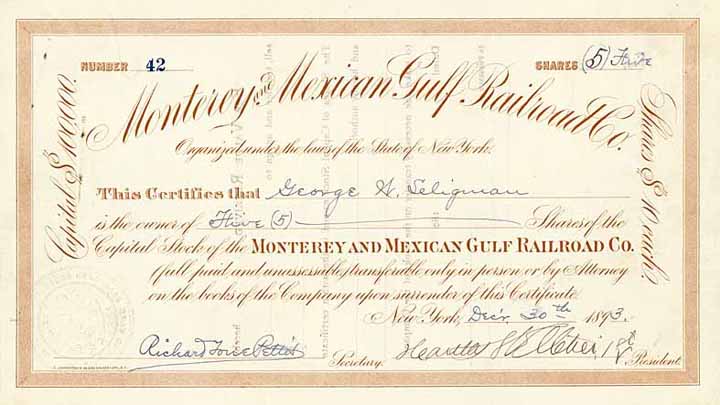 NUMBER 42 SHARES (5) Five
Monterey and Mexican Gulf Railroad Co.
Organized under the laws of the State of New York.
Capital $100,000.
Shares $10 each.
This Certifies that George W. Seligman
is the owner of Five (5) Shares of the
Capital Stock of the MONTEREY AND MEXICAN GULF RAILROAD CO.
(full paid and unassessible,) transferable only in person or by Attorney
on the books of the Company upon surrender of this Certificate.
New York, Dec'r 30th 1893.
Richard
Secretary.
President.